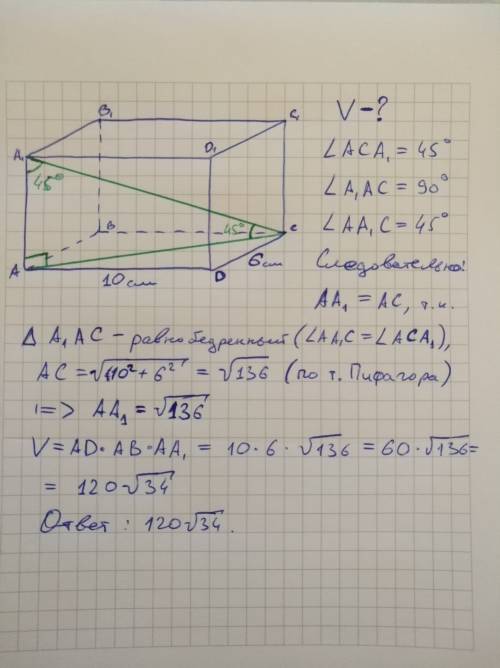 B₁
C₁
V - ?
A₁
D₁
∠ACA₁ = 45°
45°
∠A₁AC = 90°
B
45°
C
∠AA₁C = 45°
A
D
6см
10см
Следовательно:
AA₁ = AC, т.к.
Δ A₁AC - равнобедренный (∠AA₁C = ∠ACA₁),
AC = √(10² + 6²) = √136 (по т. Пифагора)
=> AA₁ = √136
V = AD · AB · AA₁ = 10 · 6 · √136 = 60 · √136 =
= 120√34
Ответ: 120√34.